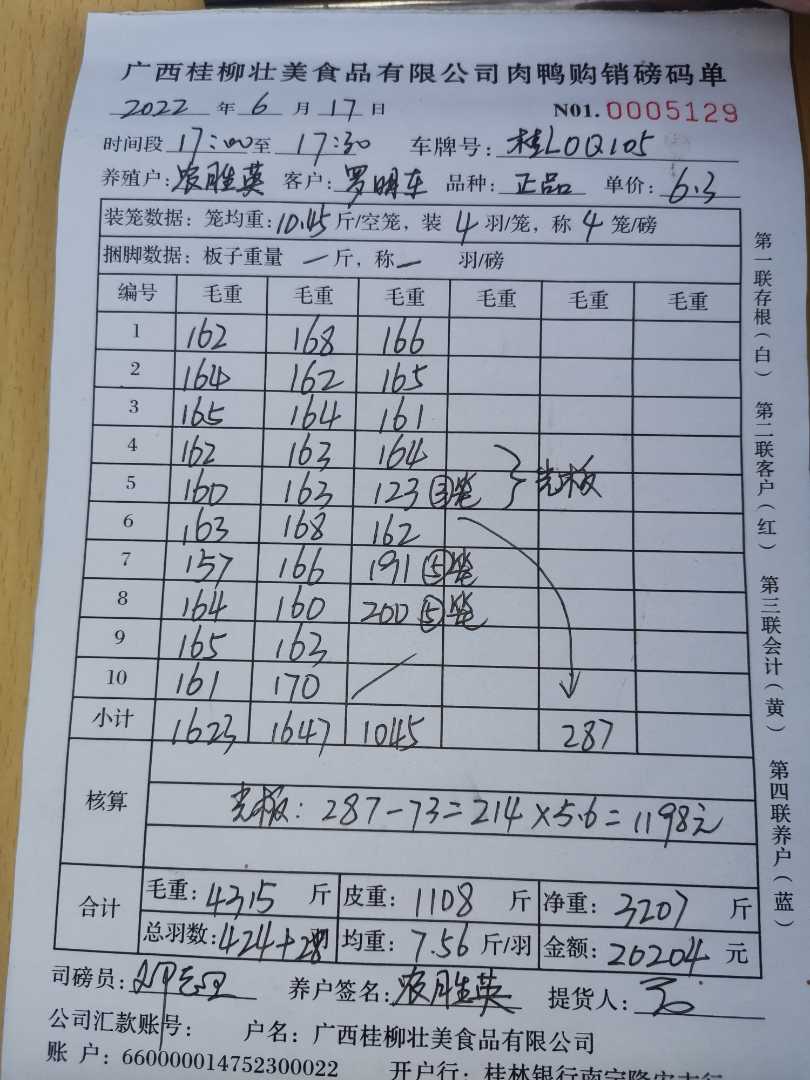 广西桂柳壮美食品有限公司肉鸭购销磅码单
2022 年 6 月 17 日 N01. 0005129
时间段 17:00 至 17:30 车牌号: 桂L0Q105
养殖户: 农胜英 客户: 罗明东 品种: 正品 单价: 6.3
装笼数据: 笼均重: 10.45 斤/空笼, 装 4 羽/笼, 称 4 笼/磅
捆脚数据: 板子重量 一 斤, 称 一 羽/磅
编号 毛重 毛重 毛重 毛重 毛重 毛重
1 162 168 166
2 164 162 165
3 165 164 161
4 162 163 164
5 160 163 123 ③笼 } 光板
6 163 168 162
7 157 166 191 ⑤笼
8 164 160 200 ⑤笼
9 165 163
10 161 170
小计 1623 1647 1045 287
核算
光板: 287-73=214×5.6=1198元
合计
毛重: 4315 斤 皮重: 1108 斤 净重: 3207 斤
总羽数: 424+28 羽 均重: 7.56 斤/羽 金额: 20204 元
司磅员: 养户签名: 农胜英 提货人:
公司汇款账号: 户名: 广西桂柳壮美食品有限公司
账 户: 660000014752300022 开户行: 桂林银行南宁隆安支行
第一联存根(白) 第二联客户(红) 第三联会计(黄) 第四联养户(蓝)